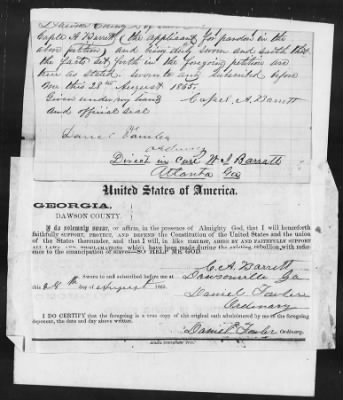 Dawson County
Caple A Barrett (the applicant for pardon in the
above petition) and being duly sworn and saith that
the facts set forth in the foregoing petition are
true as stated. sworn to and subscribed before
me this 28th August 1865.
Given under my hand Capel A. Barrett
and official seal
Daniel Fowler
Ordinary
Direct in Care W J Barrett
Atlanta Ga
United States of America.
GEORGIA,
DAWSON COUNTY
I do solemnly swear, or affirm, in the presence of Almighty God, that I will henceforth
faithfully SUPPORT, PROTECT, AND DEFEND the Constitution of the United States and the union
of the States thereunder, and that I will, in like manner, ABIDE BY AND FAITHFULLY SUPPORT
ALL LAWS AND PROCLAMATIONS which have been made during the existing rebellion, with reference
to the emancipation of slaves—SO HELP ME GOD.
C. A. Barrett
Sworn to and subscribed before me at Dawsonville Ga
this th day of August 1865.
Daniel Fowler
Ordinary
I DO CERTIFY that the foregoing is a true copy of the original oath administered by me of the foregoing
deponent, the date and day above written.
Daniel Fowler Ordinary.